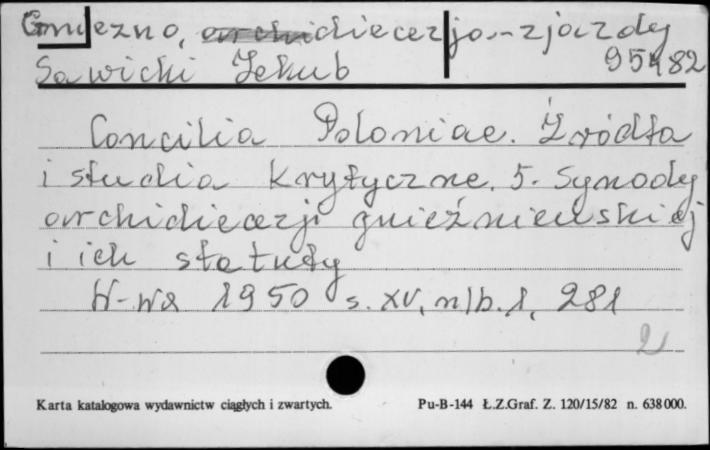 Gniezno, archidiecezja - zjazdy
Sawicki Jakub 95482
Concilia Poloniae. Źródła
i studia krytyczne. 5. Synody
archidiecezji gnieźnieńskiej
i ich statuty
W-wa 1950 s. XV, nlb. 1, 281
2
Karta katalogowa wydawnictw ciągłych i zwartych. Pu-B-144 Ł.Z.Graf. Z. 120/15/82 n. 638000.